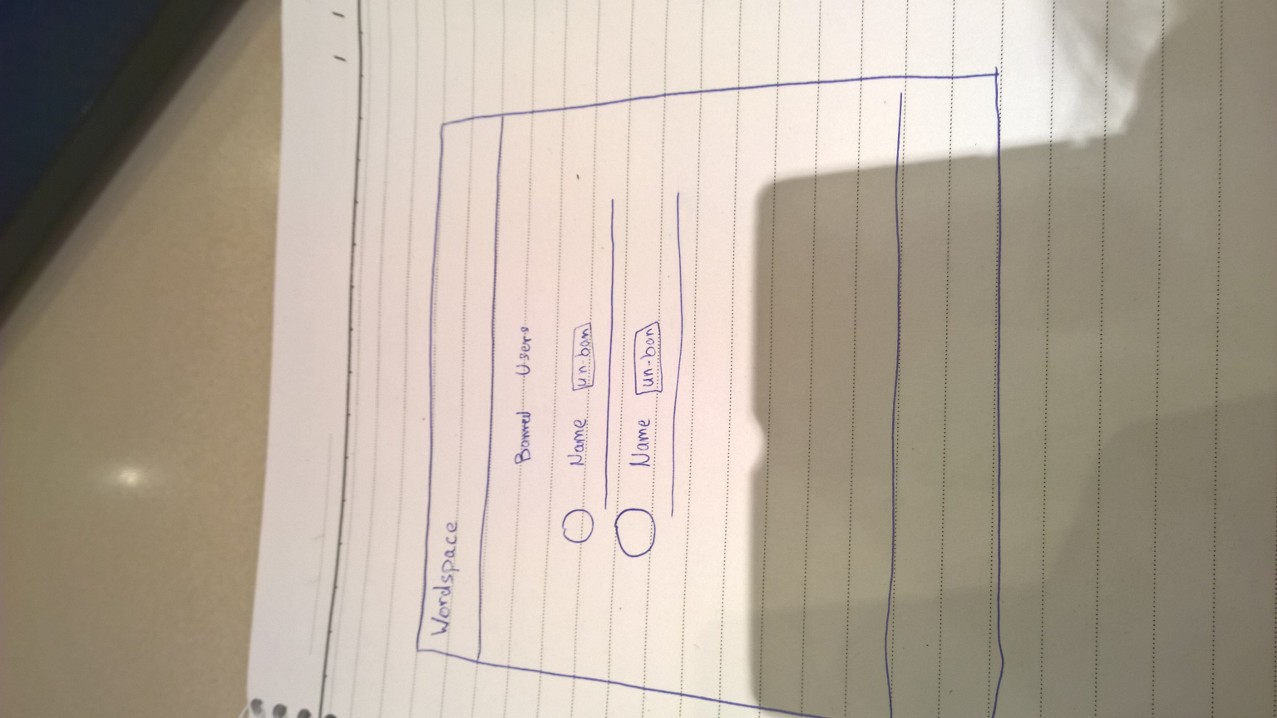 Wordspace
Banned Users
Name un-ban
Name un-ban